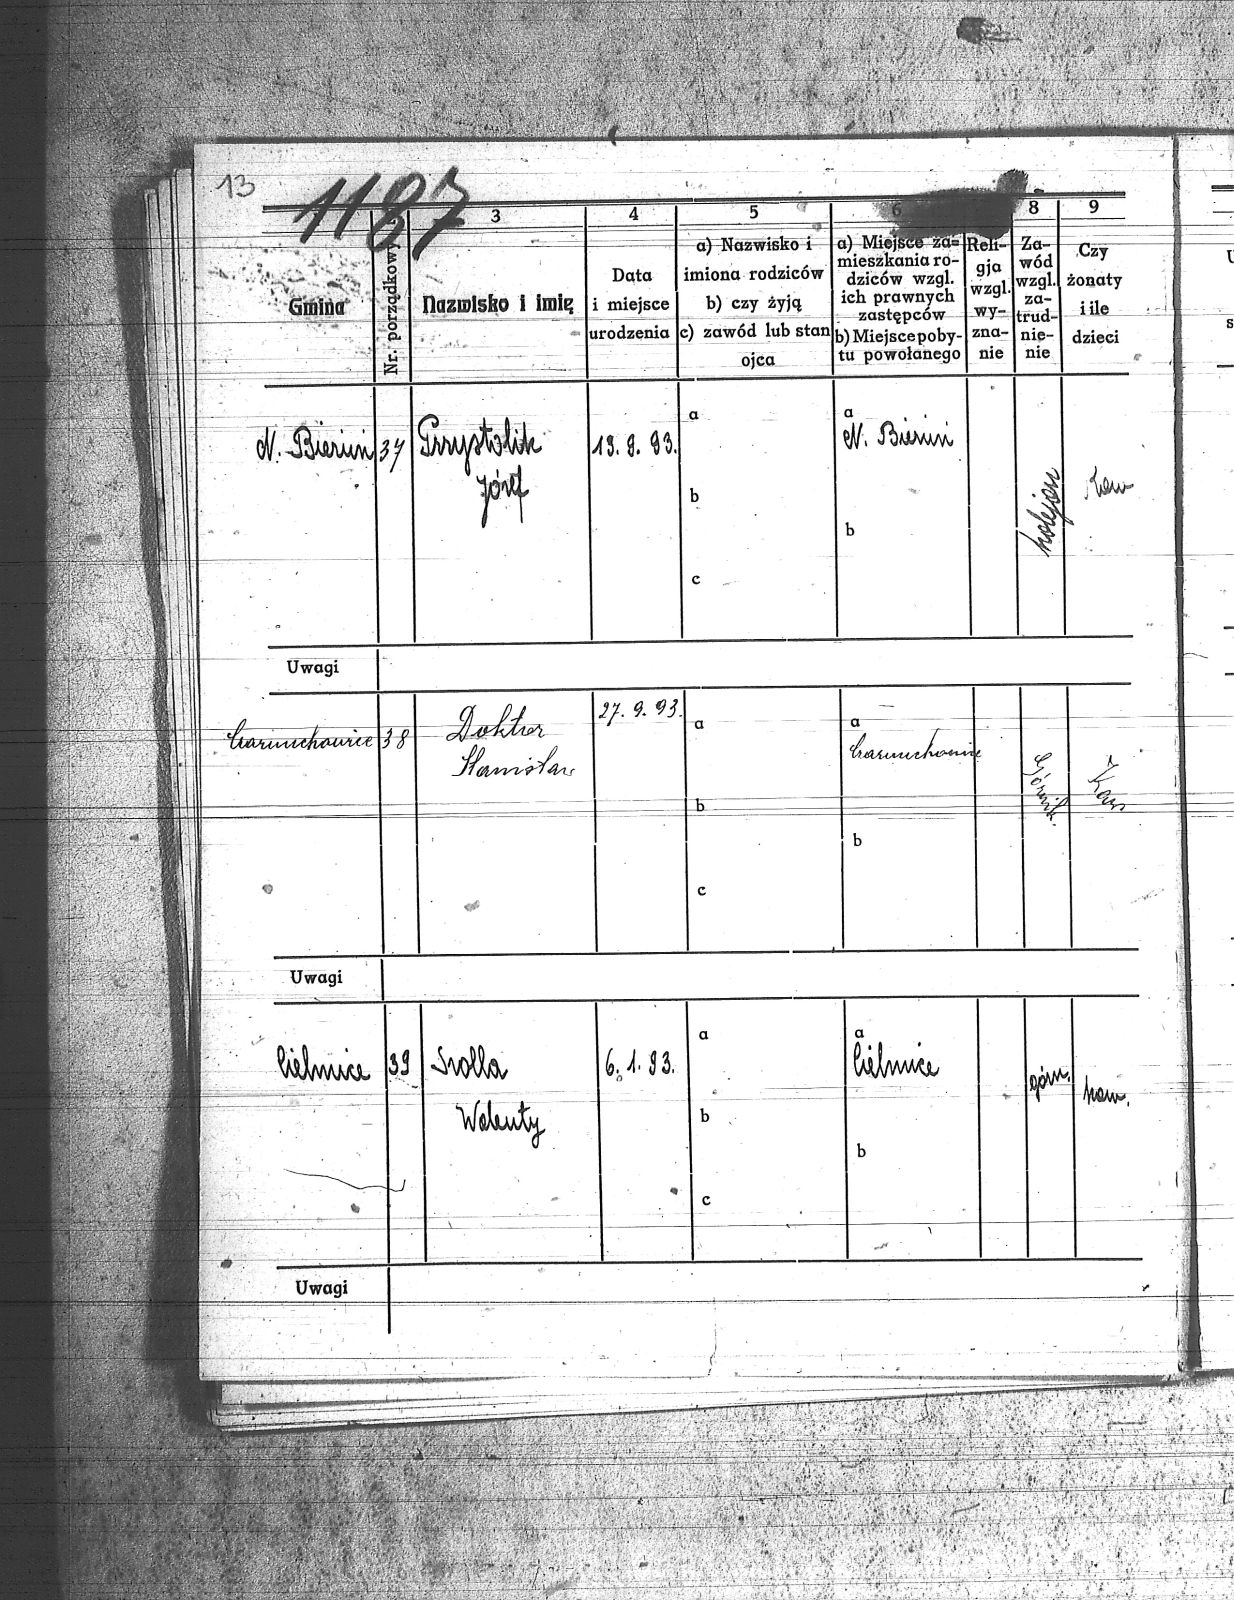 13
1187
3 4 5 6 8 9
Gmina
Nr. porządkowy
Nazwisko i imię
Data
i miejsce
urodzenia
a) Nazwisko i
imiona rodziców
b) czy żyją
c) zawód lub stan
ojca
a) Miejsce za=
mieszkania ro-
dziców wzgl.
ich prawnych
zastępców
b) Miejsce poby-
tu powołanego
Reli-
gja
wzgl.
wy-
zna-
nie
Za-
wód
wzgl.
za-
trud-
nie-
nie
Czy
żonaty
i ile
dzieci
N. Bieruń 37
Józef
a
b
c
a
N. Bieruń
b
kolejarz
Kaw
Uwagi
38 Doktor
Stanisław
27. 9. 93.
a
b
c
a
b
Górnik.
Kaw
Uwagi
Cielmice 39
Walenty
6. 1. 93.
a
b
c
a
Cielmice
b
górn.
kaw.
Uwagi